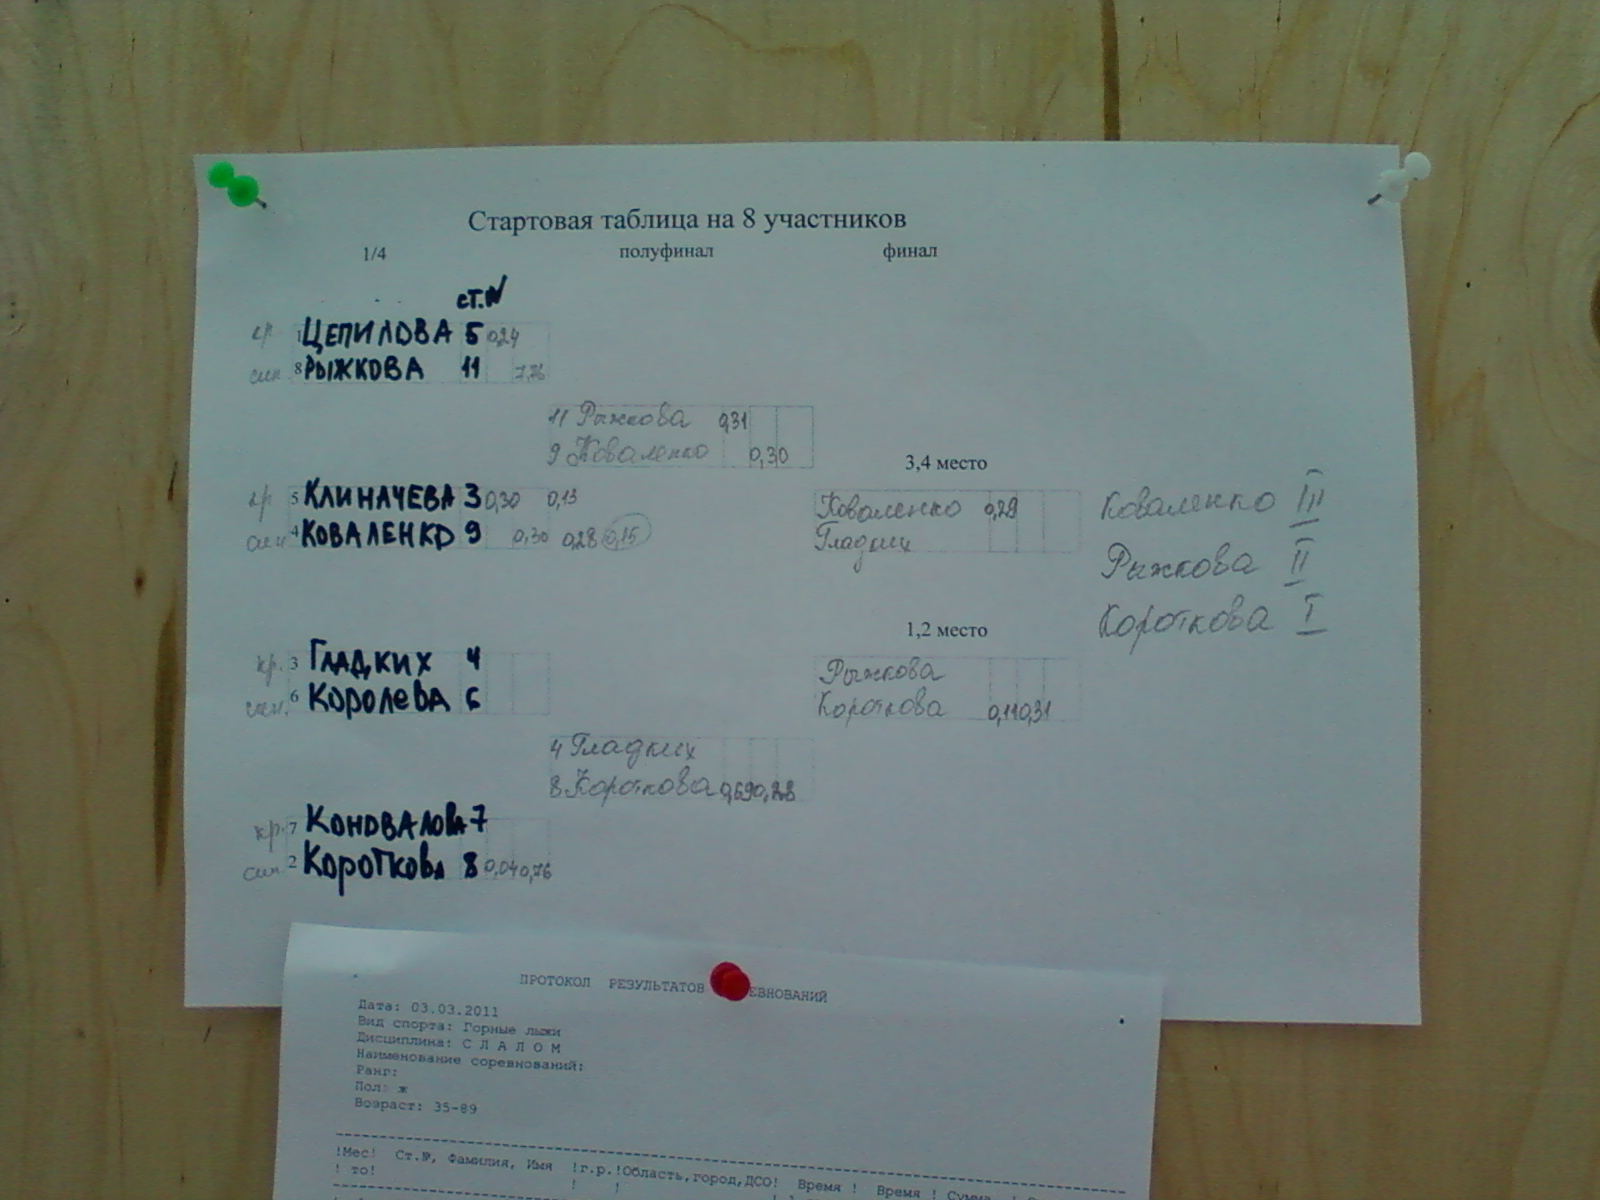 Стартовая таблица на 8 участников
1/4 полуфинал финал
ст.№
кр 1 ЦЕПИЛОВА 5 0,24
син 8 РЫЖКОВА 11 7,76
11 Рыжкова 0,31
9 Коваленко 0,30
3,4 место
кр 5 КЛИНАЧЕВА 3 0,30 0,13
син 4 КОВАЛЕНКО 9 0,30 0,28 0,15
Коваленко 0,29
Гладких
Коваленко III
Рыжкова II
Короткова I
1,2 место
кр. 3 ГЛАДКИХ 4
син. 6 КОРОЛЕВА 6
Рыжкова
Короткова 0,11 0,31
4 Гладких
8 Короткова 0,69 0,28
кр. 7 КОНОВАЛОВА 7
син 2 КОРОТКОВА 8 0,04 0,76
ПРОТОКОЛ РЕЗУЛЬТАТОВ ЕВНОВАНИЙ
Дата: 03.03.2011
Вид спорта: Горные лыжи
Дисциплина: С Л А Л О М
Наименование соревнований:
Ранг:
Пол: ж
Возраст: 35-89
!Мес! Ст.№, Фамилия, Имя !г.р.!Область,город,ДСО! Время ! Время ! Сумма !
! то! ! !